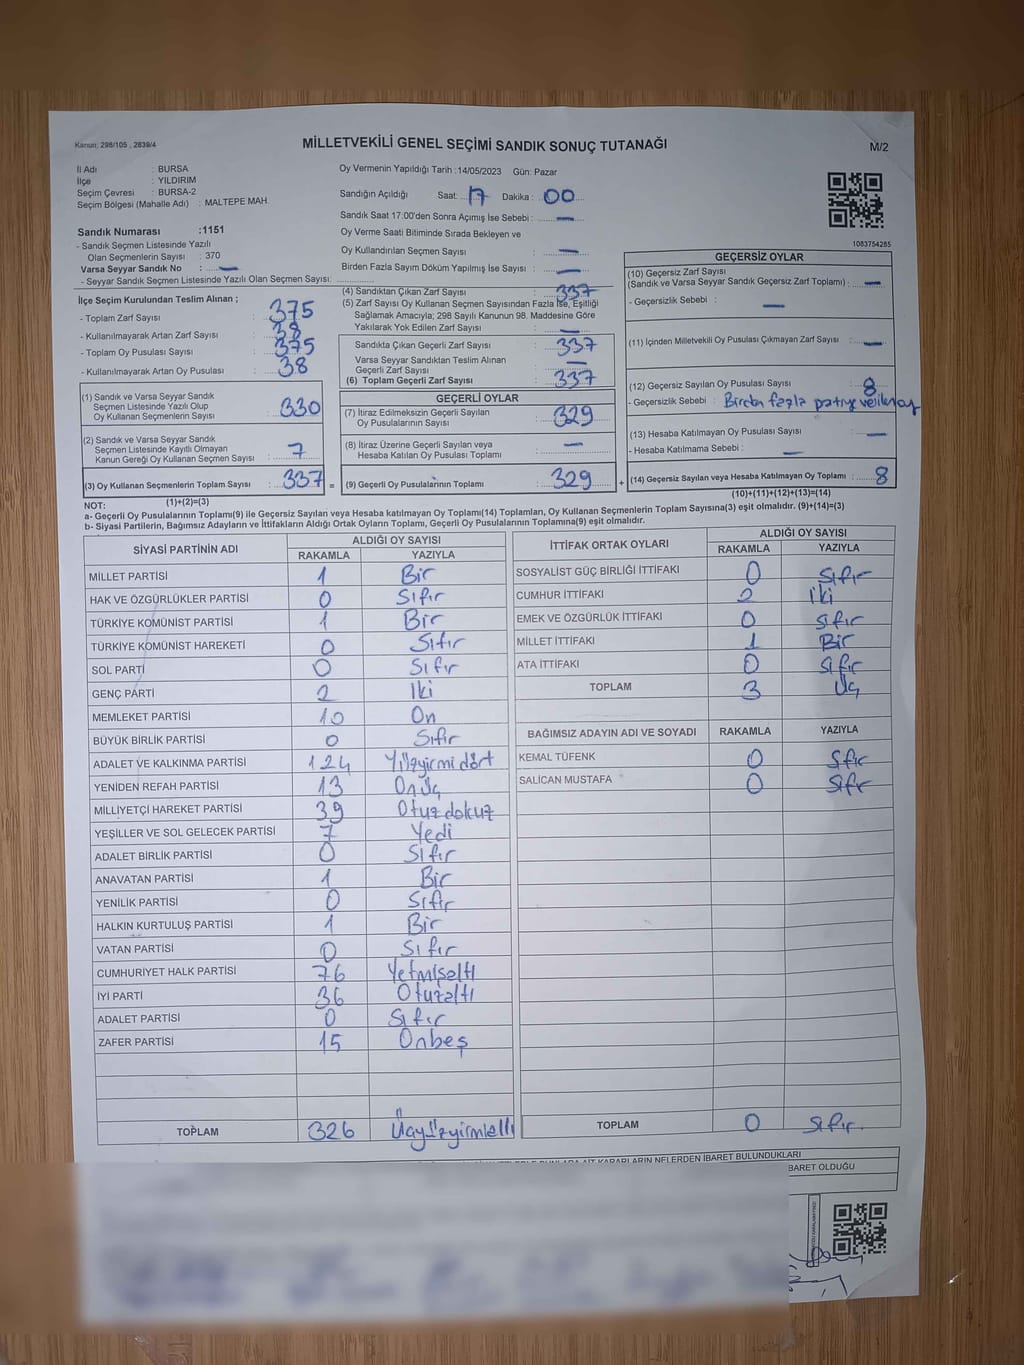 Kanun; 298/105 , 2839/4
MİLLETVEKİLİ GENEL SEÇİMİ SANDIK SONUÇ TUTANAĞI
M/2
İl Adı : BURSA
İlçe : YILDIRIM
Seçim Çevresi : BURSA-2
Seçim Bölgesi (Mahalle Adı) : MALTEPE MAH.
Sandık Numarası :1151
- Sandık Seçmen Listesinde Yazılı
Olan Seçmenlerin Sayısı : 370
Varsa Seyyar Sandık No : —
- Seyyar Sandık Seçmen Listesinde Yazılı Olan Seçmen Sayısı:
Oy Vermenin Yapıldığı Tarih :14/05/2023 Gün: Pazar
Sandığın Açıldığı Saat: 17 Dakika : 00
Sandık Saat 17:00'den Sonra Açımış İse Sebebi : —
Oy Verme Saati Bitiminde Sırada Bekleyen ve
Oy Kullandırılan Seçmen Sayısı : —
Birden Fazla Sayım Döküm Yapılmış İse Sayısı : —
1083754285
İlçe Seçim Kurulundan Teslim Alınan ;
- Toplam Zarf Sayısı : 375
- Kullanılmayarak Artan Zarf Sayısı : 38
- Toplam Oy Pusulası Sayısı : 375
- Kullanılmayarak Artan Oy Pusulası : 38
(1) Sandık ve Varsa Seyyar Sandık
Seçmen Listesinde Yazılı Olup
Oy Kullanan Seçmenlerin Sayısı : 330
(2) Sandık ve Varsa Seyyar Sandık
Seçmen Listesinde Kayıtlı Olmayan
Kanun Gereği Oy Kullanan Seçmen Sayısı : 7
(3) Oy Kullanan Seçmenlerin Toplam Sayısı : 337 =
(1)+(2)=(3)
(4) Sandıktan Çıkan Zarf Sayısı : 337
(5) Zarf Sayısı Oy Kullanan Seçmen Sayısından Fazla İse, Eşitliği
Sağlamak Amacıyla; 298 Sayılı Kanunun 98. Maddesine Göre
Yakılarak Yok Edilen Zarf Sayısı : —
Sandıkta Çıkan Geçerli Zarf Sayısı : 337
Varsa Seyyar Sandıktan Teslim Alınan
Geçerli Zarf Sayısı : —
(6) Toplam Geçerli Zarf Sayısı : 337
GEÇERLİ OYLAR
(7) İtiraz Edilmeksizin Geçerli Sayılan
Oy Pusulalarının Sayısı : 329
(8) İtiraz Üzerine Geçerli Sayılan veya
Hesaba Katılan Oy Pusulası Toplamı : —
(9) Geçerli Oy Pusulalarının Toplamı : 329 +
GEÇERSİZ OYLAR
(10) Geçersiz Zarf Sayısı
(Sandık ve Varsa Seyyar Sandık Geçersiz Zarf Toplamı) : —
- Geçersizlik Sebebi : —
(11) İçinden Milletvekili Oy Pusulası Çıkmayan Zarf Sayısı : —
(12) Geçersiz Sayılan Oy Pusulası Sayısı : 8
- Geçersizlik Sebebi : Birden fazla partiye verilen oy
(13) Hesaba Katılmayan Oy Pusulası Sayısı : —
- Hesaba Katılmama Sebebi : —
(14) Geçersiz Sayılan veya Hesaba Katılmayan Oy Toplamı : 8
(10)+(11)+(12)+(13)=(14)
NOT:
a- Geçerli Oy Pusulalarının Toplamı(9) ile Geçersiz Sayılan veya Hesaba Katılmayan Oy Toplamı(14) Toplamları, Oy Kullanan Seçmenlerin Toplam Sayısına(3) eşit olmalıdır. (9)+(14)=(3)
b- Siyasi Partilerin, Bağımsız Adayların ve İttifakların Aldığı Ortak Oyların Toplamı, Geçerli Oy Pusulalarının Toplamına(9) eşit olmalıdır.
SİYASİ PARTİNİN ADI ALDIĞI OY SAYISI
RAKAMLA YAZIYLA
MİLLET PARTİSİ 1 Bir
HAK VE ÖZGÜRLÜKLER PARTİSİ 0 Sıfır
TÜRKİYE KOMÜNİST PARTİSİ 1 Bir
TÜRKİYE KOMÜNİST HAREKETİ 0 Sıfır
SOL PARTİ 0 Sıfır
GENÇ PARTİ 2 İki
MEMLEKET PARTİSİ 10 On
BÜYÜK BİRLİK PARTİSİ 0 Sıfır
ADALET VE KALKINMA PARTİSİ 124 Yüzyirmi dört
YENİDEN REFAH PARTİSİ 13 Onüç
MİLLİYETÇİ HAREKET PARTİSİ 39 Otuz dokuz
YEŞİLLER VE SOL GELECEK PARTİSİ 7 Yedi
ADALET BİRLİK PARTİSİ 0 Sıfır
ANAVATAN PARTİSİ 1 Bir
YENİLİK PARTİSİ 0 Sıfır
HALKIN KURTULUŞ PARTİSİ 1 Bir
VATAN PARTİSİ 0 Sıfır
CUMHURİYET HALK PARTİSİ 76 Yetmişaltı
İYİ PARTİ 36 Otuzaltı
ADALET PARTİSİ 0 Sıfır
ZAFER PARTİSİ 15 Onbeş
TOPLAM 326 Üçyüzyirmialtı
İTTİFAK ORTAK OYLARI ALDIĞI OY SAYISI
RAKAMLA YAZIYLA
SOSYALİST GÜÇ BİRLİĞİ İTTİFAKI 0 Sıfır
CUMHUR İTTİFAKI 2 İki
EMEK VE ÖZGÜRLÜK İTTİFAKI 0 Sıfır
MİLLET İTTİFAKI 1 Bir
ATA İTTİFAKI 0 Sıfır
TOPLAM 3 Üç
BAĞIMSIZ ADAYIN ADI VE SOYADI RAKAMLA YAZIYLA
KEMAL TÜFENK 0 Sıfır
SALİCAN MUSTAFA 0 Sıfır
TOPLAM 0 Sıfır
KARARLARIN NELERDEN İBARET BULUNDUKLARI
İBARET OLDUĞU